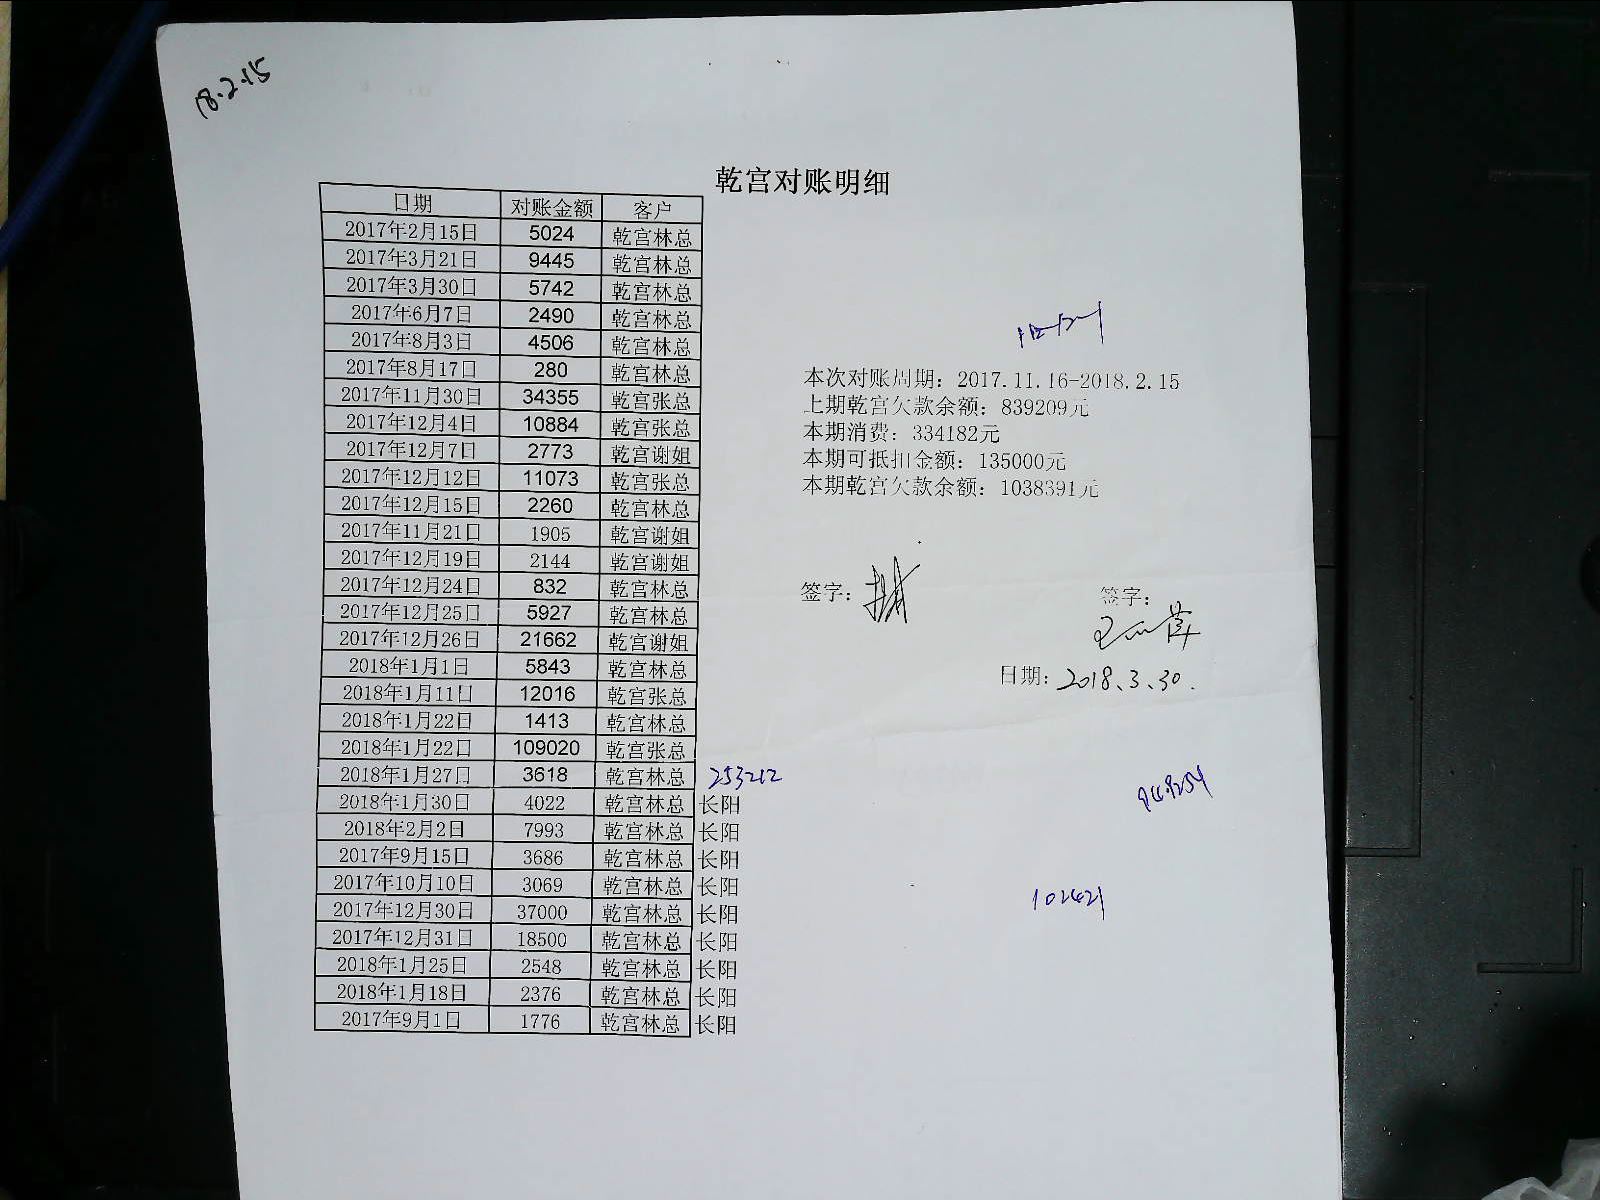 18.2.15
乾宫对账明细
日期 对账金额 客户
2017年2月15日 5024 乾宫林总
2017年3月21日 9445 乾宫林总
2017年3月30日 5742 乾宫林总
2017年6月7日 2490 乾宫林总
2017年8月3日 4506 乾宫林总
2017年8月17日 280 乾宫林总
2017年11月30日 34355 乾宫张总
2017年12月4日 10884 乾宫张总
2017年12月7日 2773 乾宫谢姐
2017年12月12日 11073 乾宫张总
2017年12月15日 2260 乾宫林总
2017年11月21日 1905 乾宫谢姐
2017年12月19日 2144 乾宫谢姐
2017年12月24日 832 乾宫林总
2017年12月25日 5927 乾宫林总
2017年12月26日 21662 乾宫谢姐
2018年1月1日 5843 乾宫林总
2018年1月11日 12016 乾宫张总
2018年1月22日 1413 乾宫林总
2018年1月22日 109020 乾宫张总
2018年1月27日 3618 乾宫林总 253212
2018年1月30日 4022 乾宫林总 长阳
2018年2月2日 7993 乾宫林总 长阳
2017年9月15日 3686 乾宫林总 长阳
2017年10月10日 3069 乾宫林总 长阳
2017年12月30日 37000 乾宫林总 长阳
2017年12月31日 18500 乾宫林总 长阳
2018年1月25日 2548 乾宫林总 长阳
2018年1月18日 2376 乾宫林总 长阳
2017年9月1日 1776 乾宫林总 长阳
本次对账周期：2017.11.16-2018.2.15
上期乾宫欠款余额：839209元
本期消费：334182元
本期可抵扣金额：135000元
本期乾宫欠款余额：1038391元
签字：
签字：
日期：2018.3.30.
102421